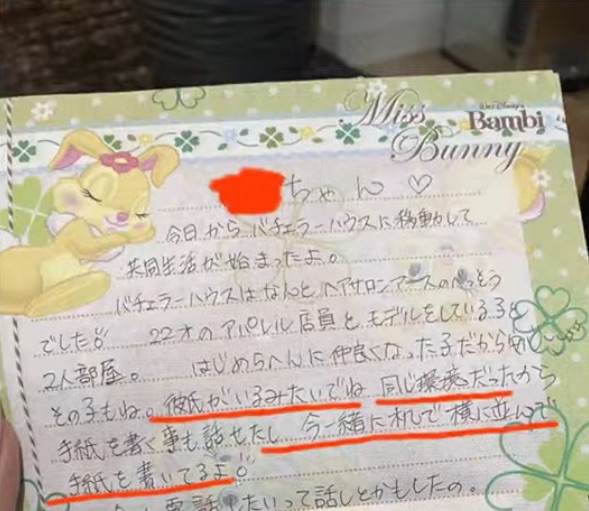 Miss Bunny
Walt Disney's Bambi
ちゃん♡
今日からバチェラーハウスに移動して
共同生活が始まったよ。
バチェラーハウスはなんとヘアサロンアースのべっそう
でした!! 22才のアパレル店員と、モデルをしている子と
2人部屋。 はじめらへんに仲良くなった子だから
その子もね。彼氏がいるみたいでね 同じ環境だったから
手紙を書く事も話せたし 今一緒に机で横に並んで
手紙を書いてるよ!!
電話したいって話しとかもしたの。